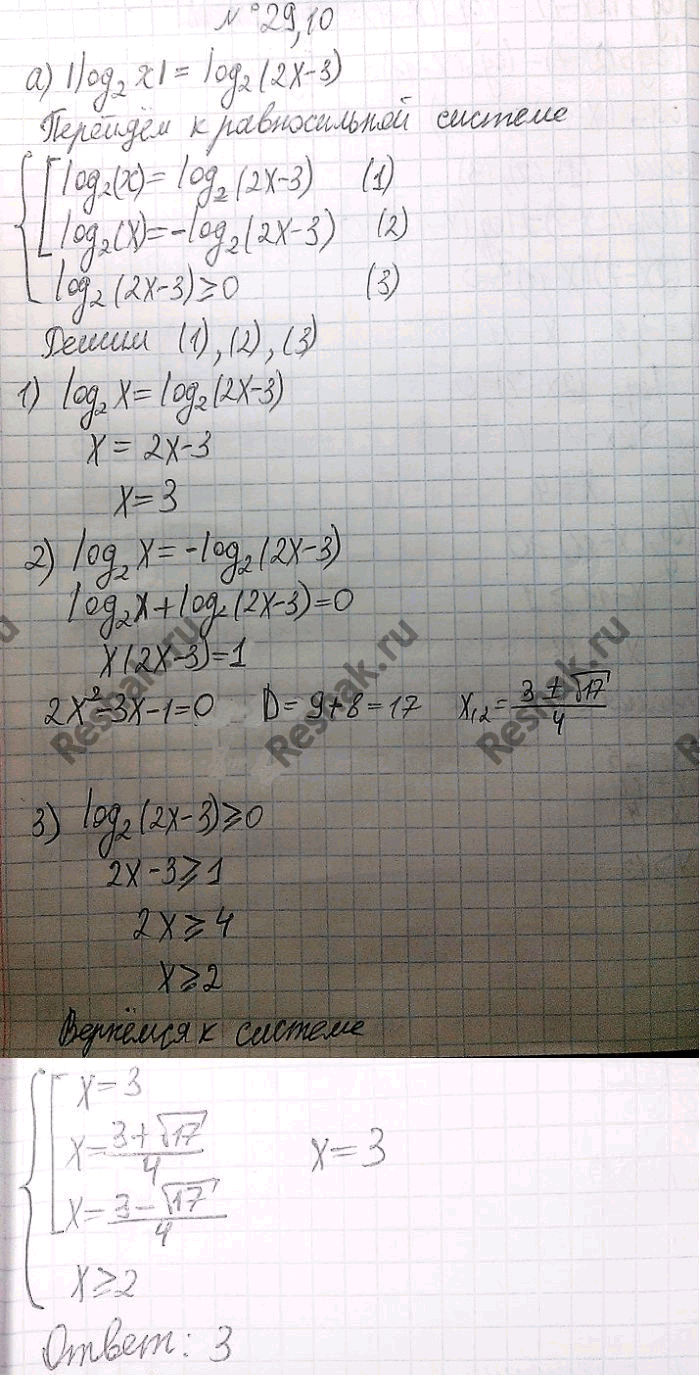 № 29,10
а) |log₂ x| = log₂(2x-3)
Перейдём к равносильной системе
log₂(x) = log₂(2x-3) (1)
log₂(x) = -log₂(2x-3) (2)
log₂(2x-3) ≥ 0 (3)
Решим (1), (2), (3)
1) log₂ x = log₂(2x-3)
x = 2x-3
x = 3
2) log₂ x = -log₂(2x-3)
log₂ x + log₂(2x-3) = 0
x(2x-3) = 1
2x²-3x-1=0 D = 9+8 = 17 x₁,₂ = (3±√17)/4
Reshak.ru Reshak.ru Reshak.ru
3) log₂(2x-3) ≥ 0
2x-3 ≥ 1
2x ≥ 4
x ≥ 2
Вернёмся к системе
x = 3
x = (3+√17)/4 x = 3
x = (3-√17)/4
x ≥ 2
Ответ: 3